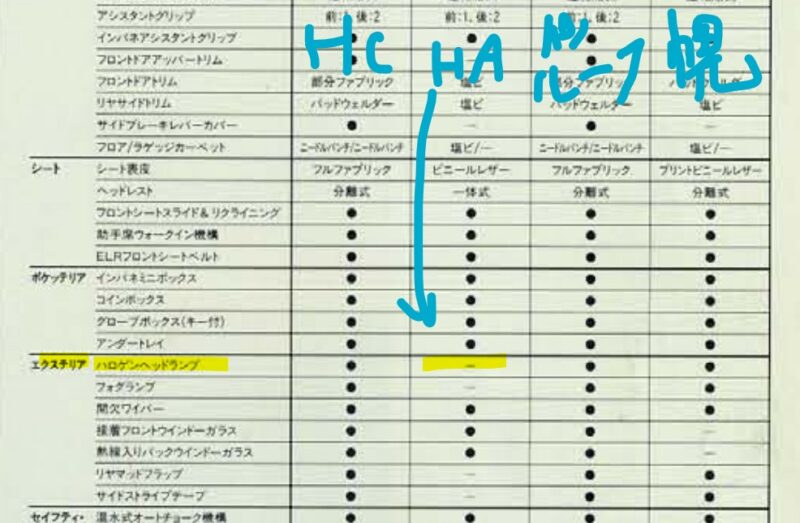 アシスタントグリップ 前:1、後:2 前:1、後:2
インパネアシスタントグリップ ● ● ● ●
フロントドアアッパートリム ● — ●
HC HA 幌
フロントドアトリム 部分ファブリック 塩ビ 部分ファブリック
リヤサイドトリム パッドウェルダー 塩ビ パッドウェルダー 塩ビ
サイドブレーキレバーカバー ● — ● —
フロア/ラゲッジカーペット ニードルパンチ/ニードルパンチ 塩ビ/— ニードルパンチ/ニードルパンチ 塩ビ/—
シート シート表皮 フルファブリック ビニールレザー フルファブリック プリントビニールレザー
ヘッドレスト 分離式 一体式 分離式 分離式
フロントシートスライド&リクライニング ● ● ● ●
助手席ウォークイン機構 ● ● ● ●
ELRフロントシートベルト ● ● ● ●
ポケッテリア インパネミニボックス ● ● ● ●
コインボックス ● ● ● ●
グローブボックス(キー付) ● ● ● ●
アンダートレイ ● ● ● ●
エクステリア ハロゲンヘッドランプ ● — ● ●
フォグランプ ● — ● ●
間欠ワイパー ● ● ● ●
接着フロントウインドーガラス ● ● ● —
熱線入りバックウインドーガラス ● ● ● —
リヤマッドフラップ ● — ● ●
サイドストライプテープ ● — ● ●
セイフティ・ 温水式オートチョーク機構 ● ● ● ●